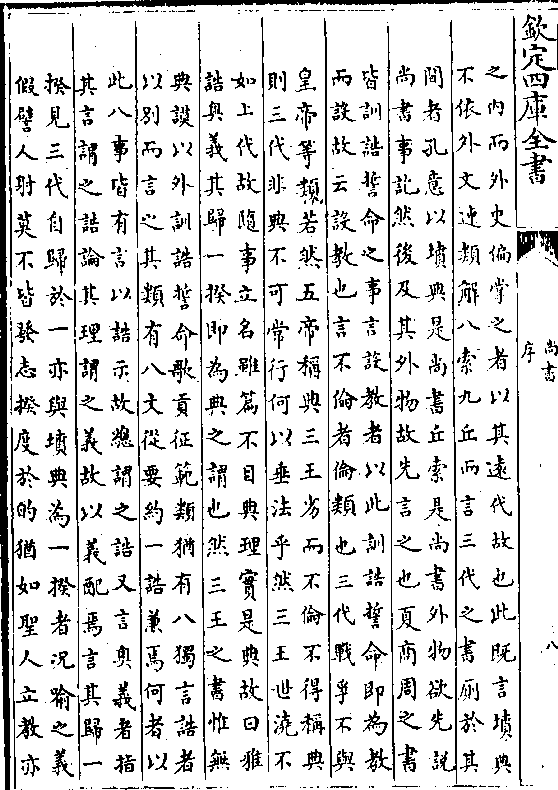 欽定四庫全書
尚書
序
八
之内而外史偏掌之者以其遠代故也此既言墳典
不依外文連類解八索九丘而言三代之書廁於其
間者孔意以墳典是尚書丘索是尚書外物欲先說
尚書事訖然後及其外物故先言之也夏商周之書
皆訓誥誓命之事言設教者以此訓誥誓命即為教
而設故云設教也言不倫者倫類也三代戰爭不與
皇帝等類若然五帝稱典三王劣而不倫不得稱典
則三代非典不可常行何以垂法乎然三王世澆不
如上代故隨事立名雖篇不目典理實是典故曰雅
誥奥義其歸一揆即為典之謂也然三王之書惟無
典謨以外訓誥誓命歌貢征範類猶有八獨言誥者
以別而言之其類有八文從要約一誥兼焉何者以
此八事皆有言以誥示故緫謂之誥又言奥義者指
其言謂之誥論其理謂之義故以義配焉言其歸一
揆見三代自歸於一亦與墳典為一揆者況喻之義
假譬人射莫不皆發志揆度於的猶如聖人立教亦